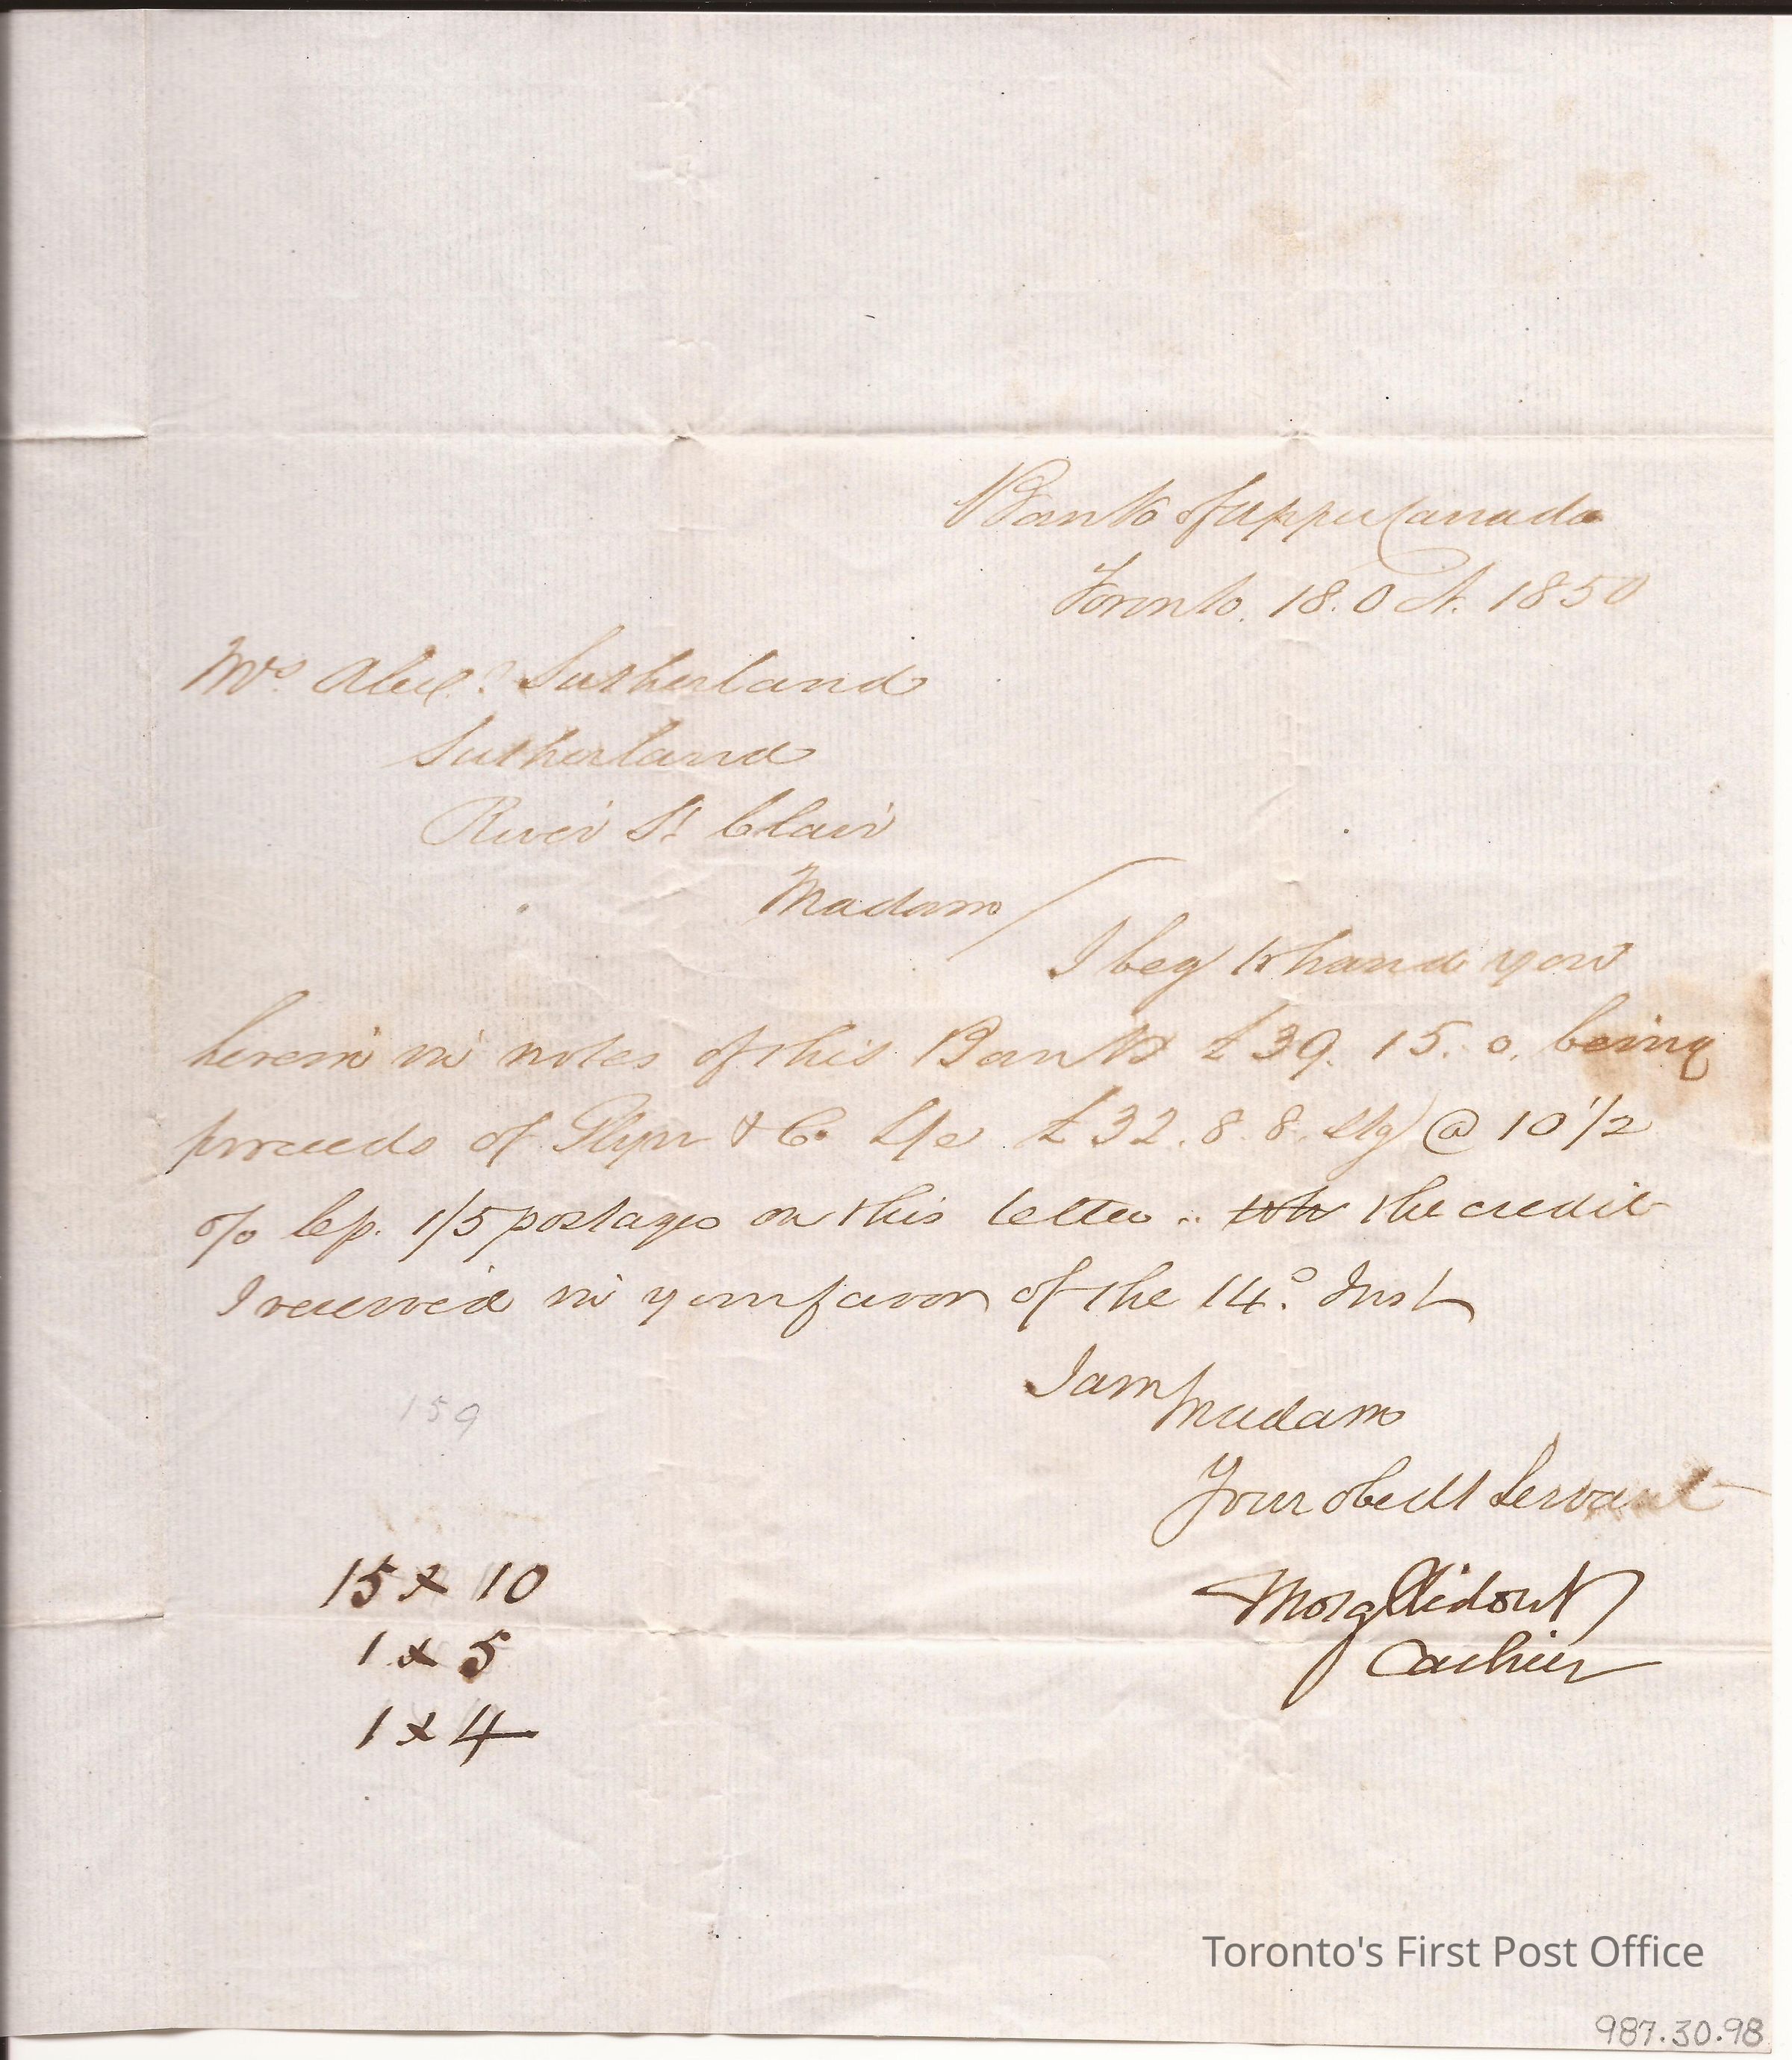 Bank of Upper Canada
Toronto. 18. Oct. 1850
Mrs. Alexr. Sutherland
Sutherland
River St Clair
Madam/
I beg to hand you
herein in notes of this Bank £39. 15. 0. being
proceeds of Glyn & Co £32. 8. 8. Stg @ 10 1/2
o/o lep. 1/5 postage on this letter .. the credit
I received in your favor of the 14o. Inst
I am
Madam
Your obedt Servant
159
15 x 10
Thos G Ridout
1 x 5
Cashier
1 x 4
Toronto's First Post Office
987.30.98